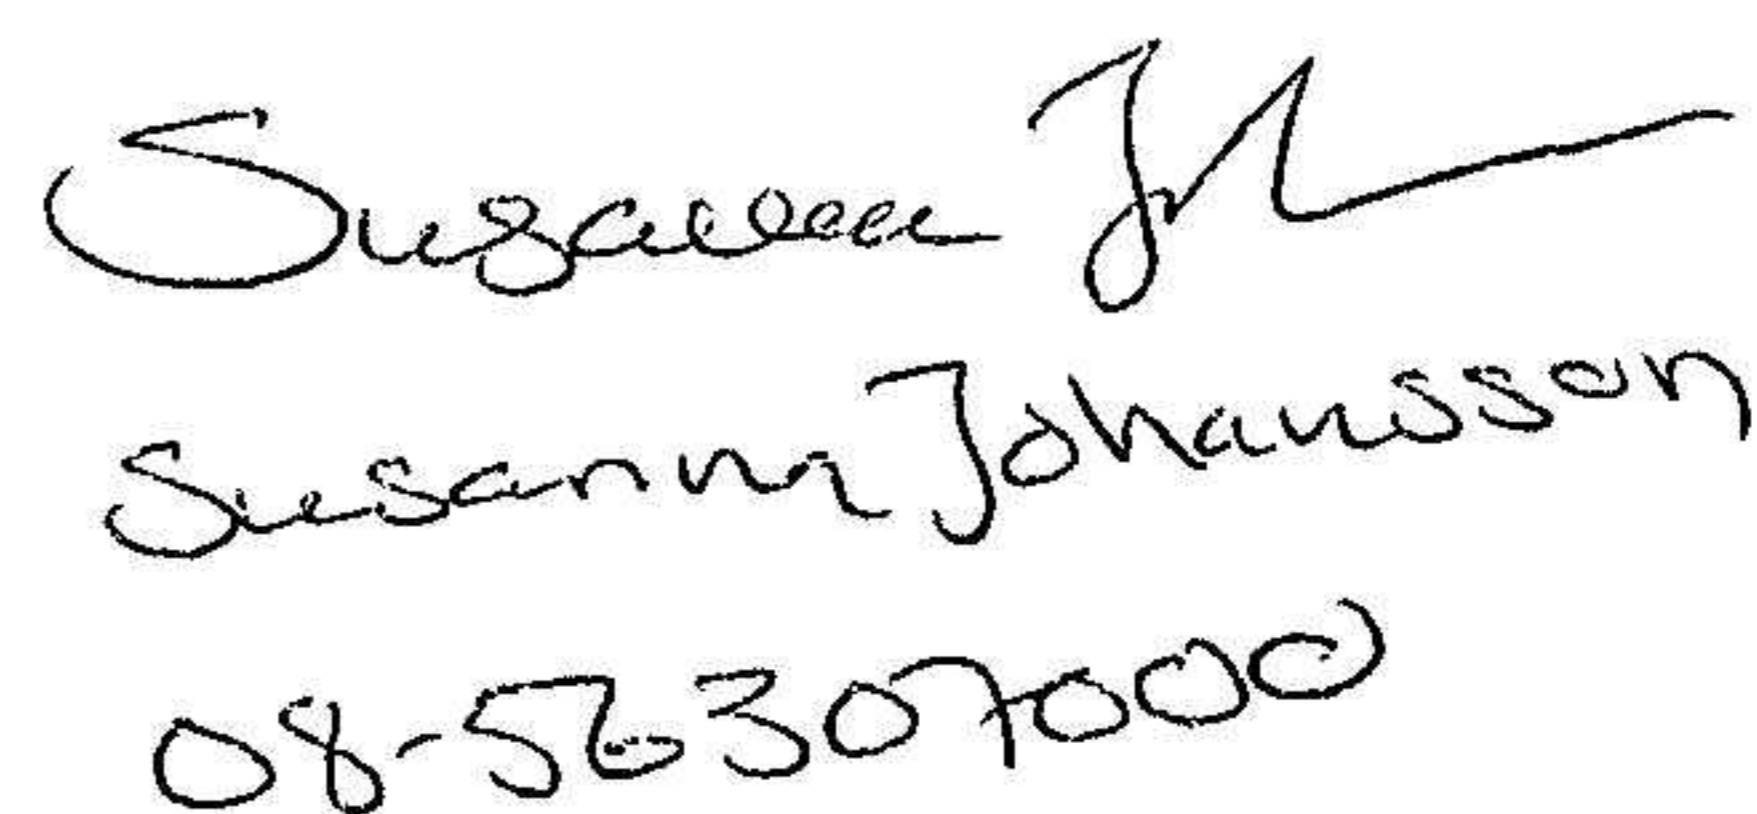 Susanna Joh
Susanna Johansson
08-56307000